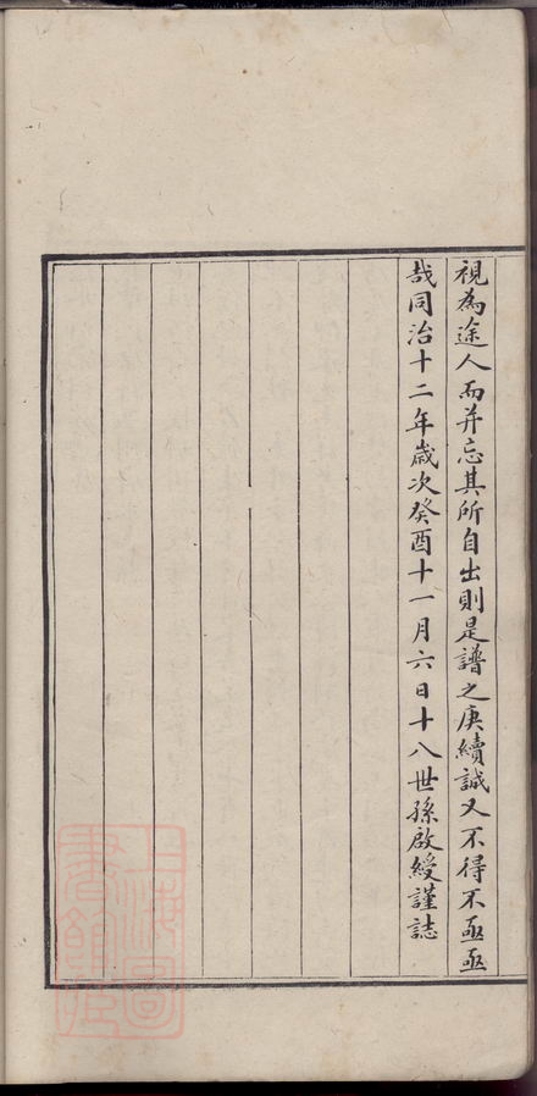 視為途人而并忘其所自出則是譜之庚續誠又不得不亟亟
哉同治十二年歲次癸酉十一月六日十八世孫啟綬謹誌
上海圖
書館藏